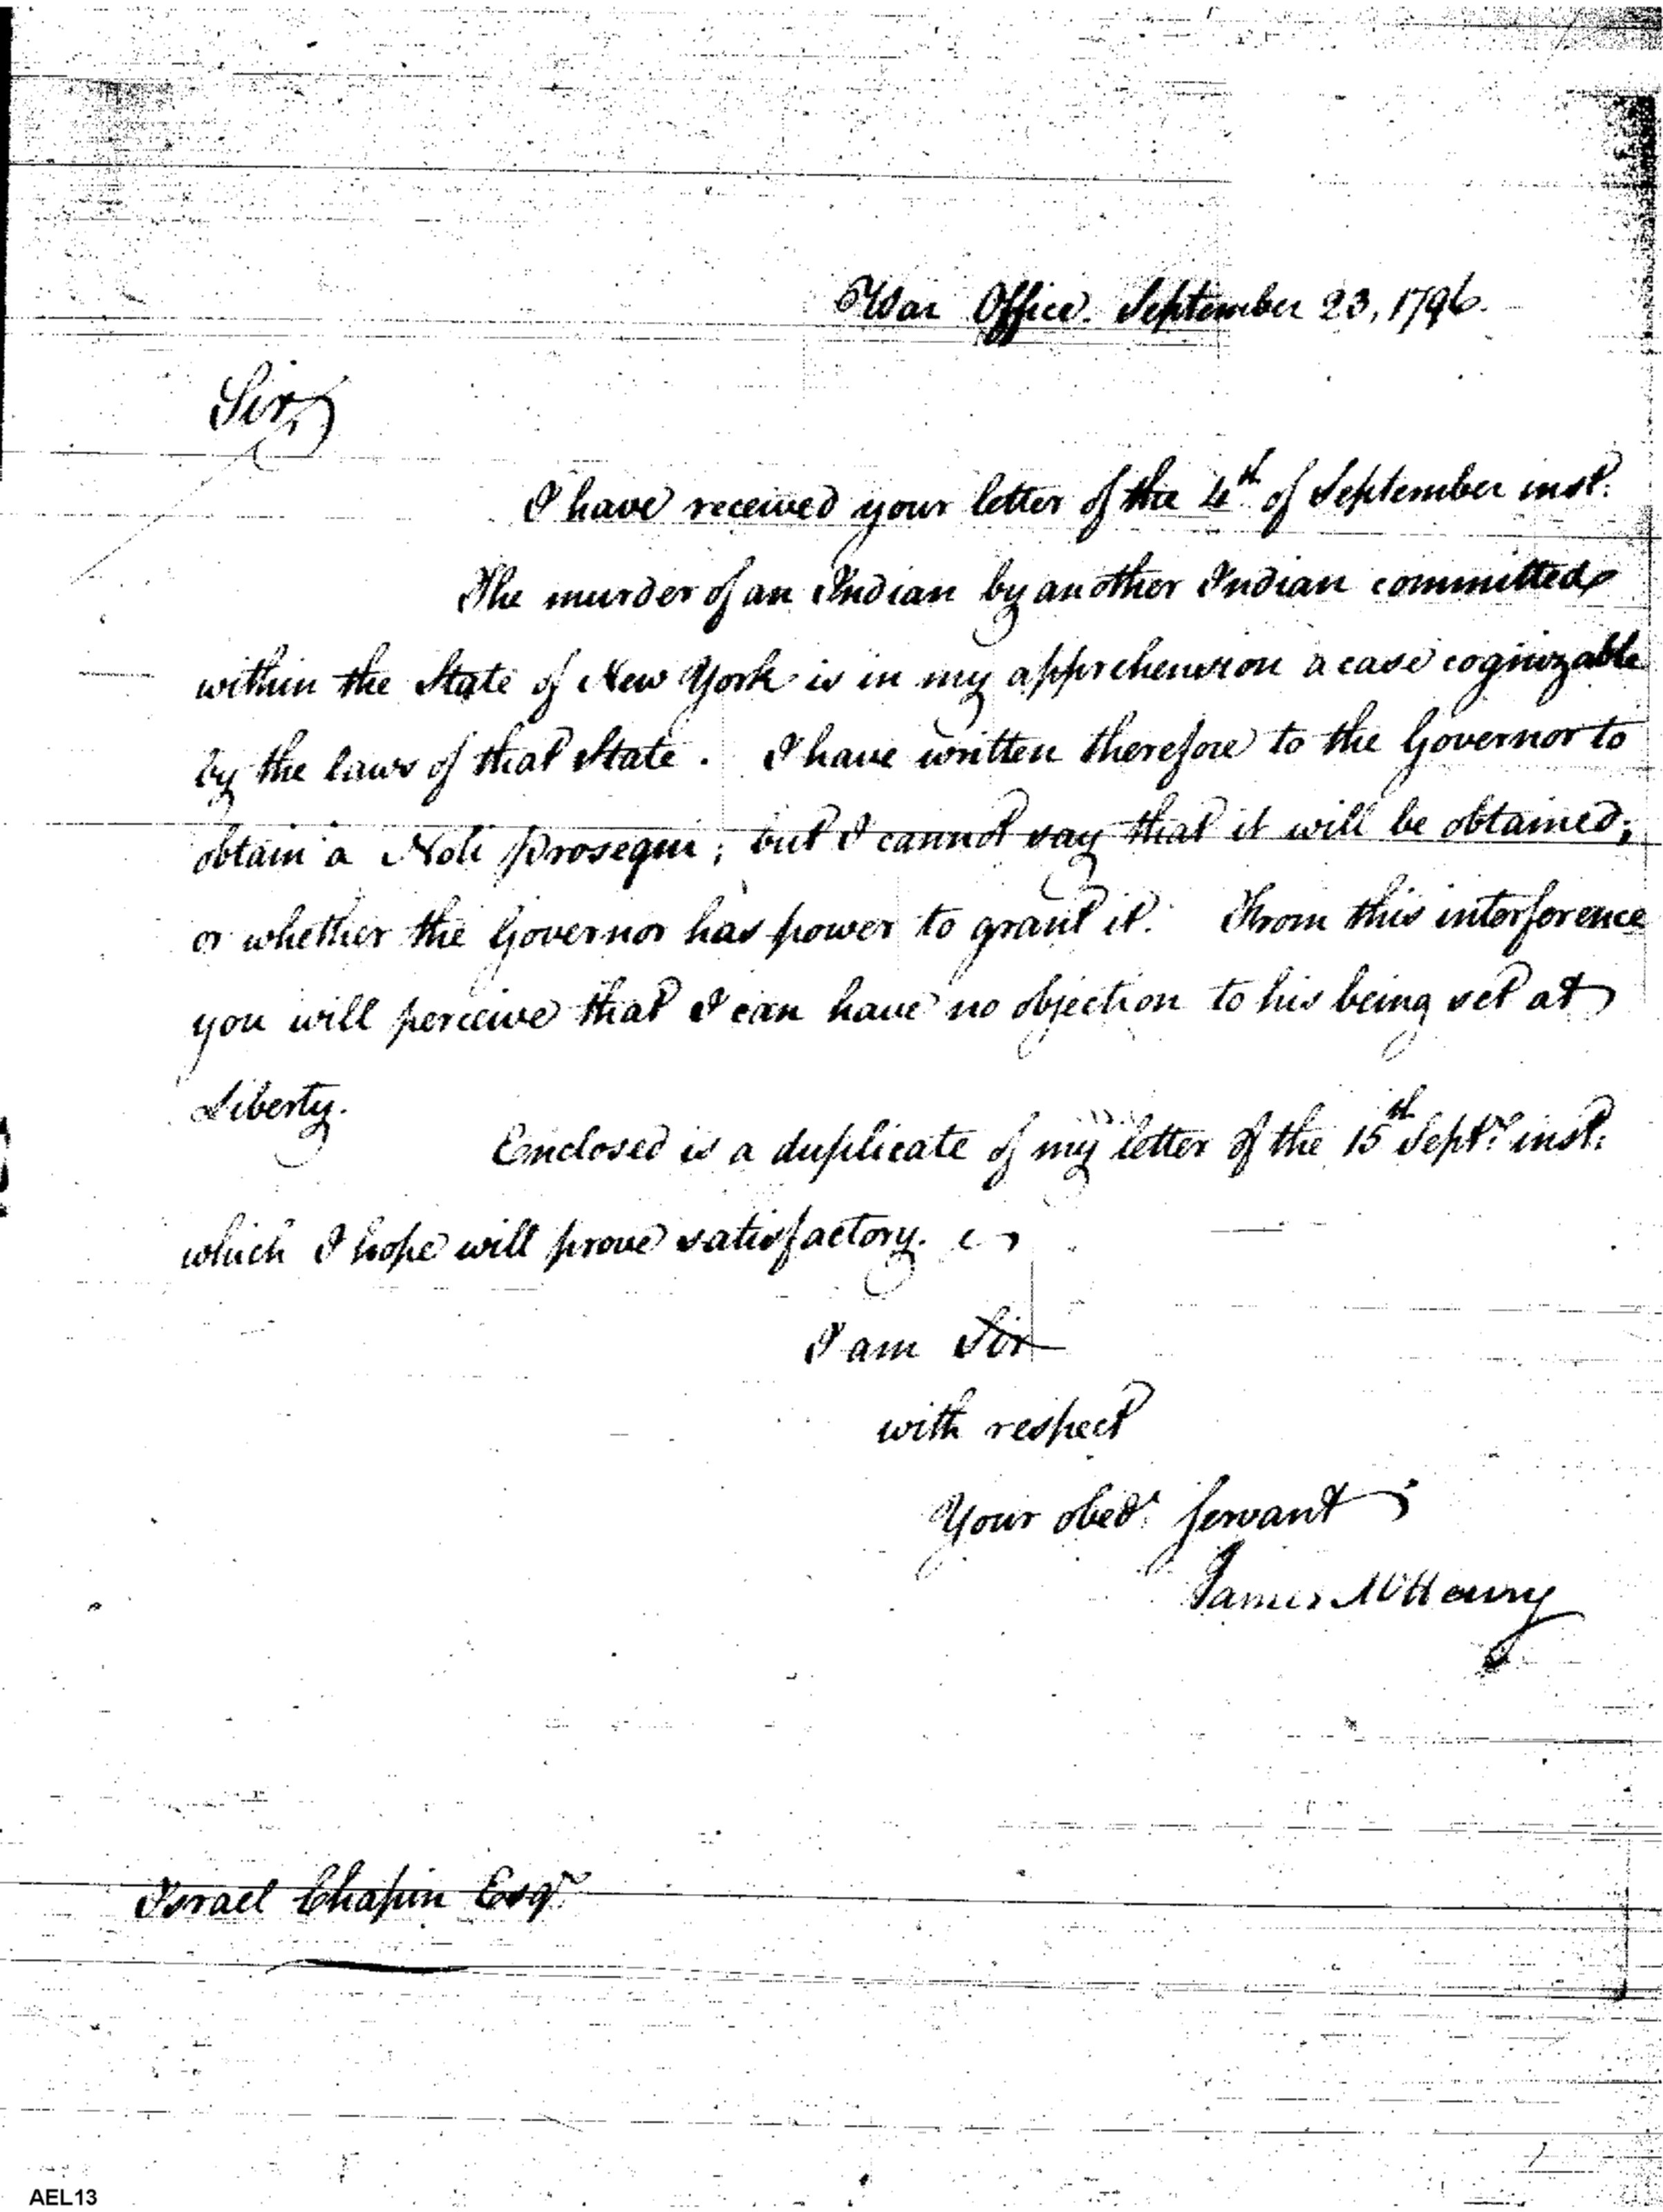 War Office. September 23, 1796.
Sir,
I have received your letter of the 4th of September inst.
The murder of an Indian by another Indian committed
within the State of New York is in my apprehension a case cognizable
by the laws of that State. I have written therefore to the Governor to
obtain a Noli prosequi; but I cannot say that it will be obtained;
or whether the Governor has power to grant it. From this interference
you will perceive that I can have no objection to his being set at
Liberty.
Enclosed is a duplicate of my letter of the 15th Septr. inst.
which I hope will prove satisfactory.
I am Sir
with respect
Your obedt. servant
James McHenry
Israel Chapin Esqr.
AEL13